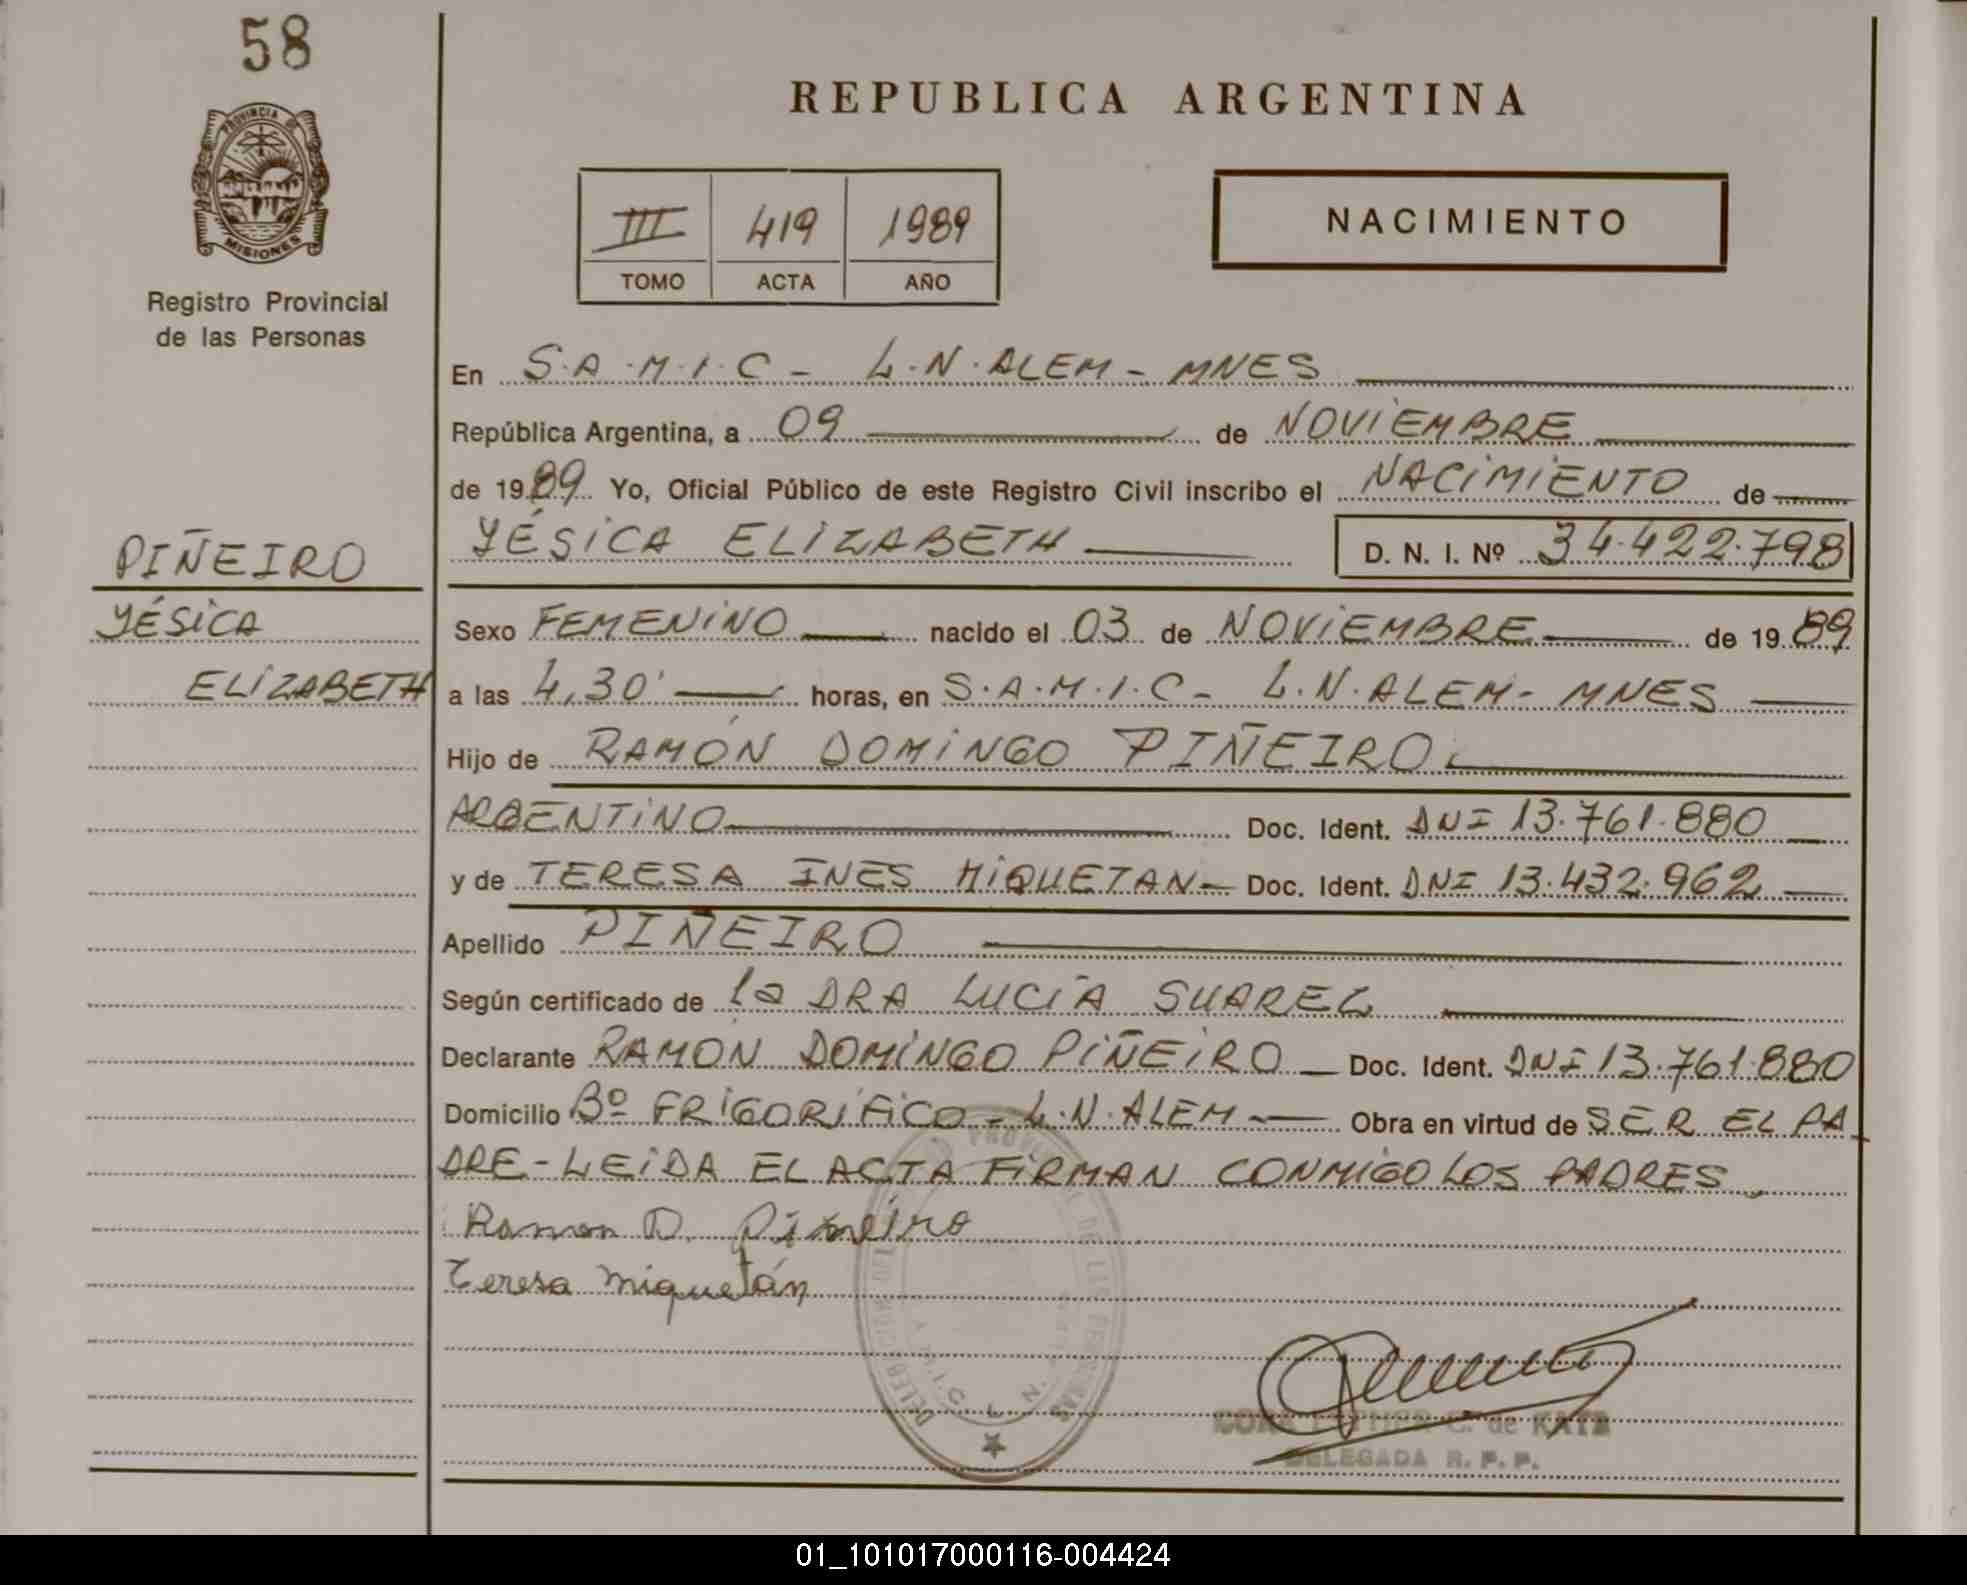 58
PROVINCIA DE
MISIONES
Registro Provincial
de las Personas
PIÑEIRO
YÉSICA
ELIZABETH
REPUBLICA ARGENTINA
III 419 1989
TOMO ACTA AÑO
NACIMIENTO
En S.A.M.I.C - L.N.ALEM - MNES
República Argentina, a 09 de NOVIEMBRE
de 1989 Yo, Oficial Público de este Registro Civil inscribo el NACIMIENTO de
YÉSICA ELIZABETH D. N. I. Nº 34.422.798
Sexo FEMENINO nacido el 03 de NOVIEMBRE de 1989
a las 4,30' horas, en S.A.M.I.C - L.N.ALEM - MNES
Hijo de RAMÓN DOMINGO PIÑEIRO
ARGENTINO Doc. Ident. DNI 13.761.880
y de TERESA INES MIQUETAN - Doc. Ident. DNI 13.432.962
Apellido PIÑEIRO
Según certificado de la DRA LUCÍA SUAREZ
Declarante RAMÓN DOMINGO PIÑEIRO - Doc. Ident. DNI 13.761.880
Domicilio Bº FRIGORÍFICO - L.N.ALEM - Obra en virtud de SER EL PA-
DRE - LEIDA EL ACTA FIRMAN CONMIGO LOS PADRES
Ramon D. Piñeiro
Teresa Miquetán
C. de KATZ
DELEGADA R. P. P.
01_101017000116-004424